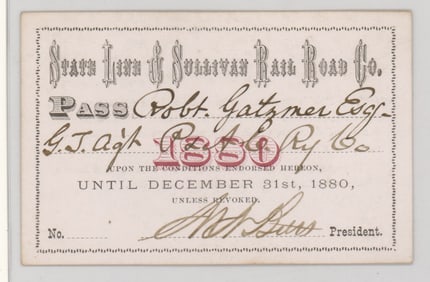 STATE LINE & SULLIVAN RAIL ROAD CO.
PASS Robt. Gatzmer Esq.
G. T. Ag't P. & A. Ry Co
1880
UPON THE CONDITIONS ENDORSED HEREON,
UNTIL DECEMBER 31st, 1880,
UNLESS REVOKED.
No. President.